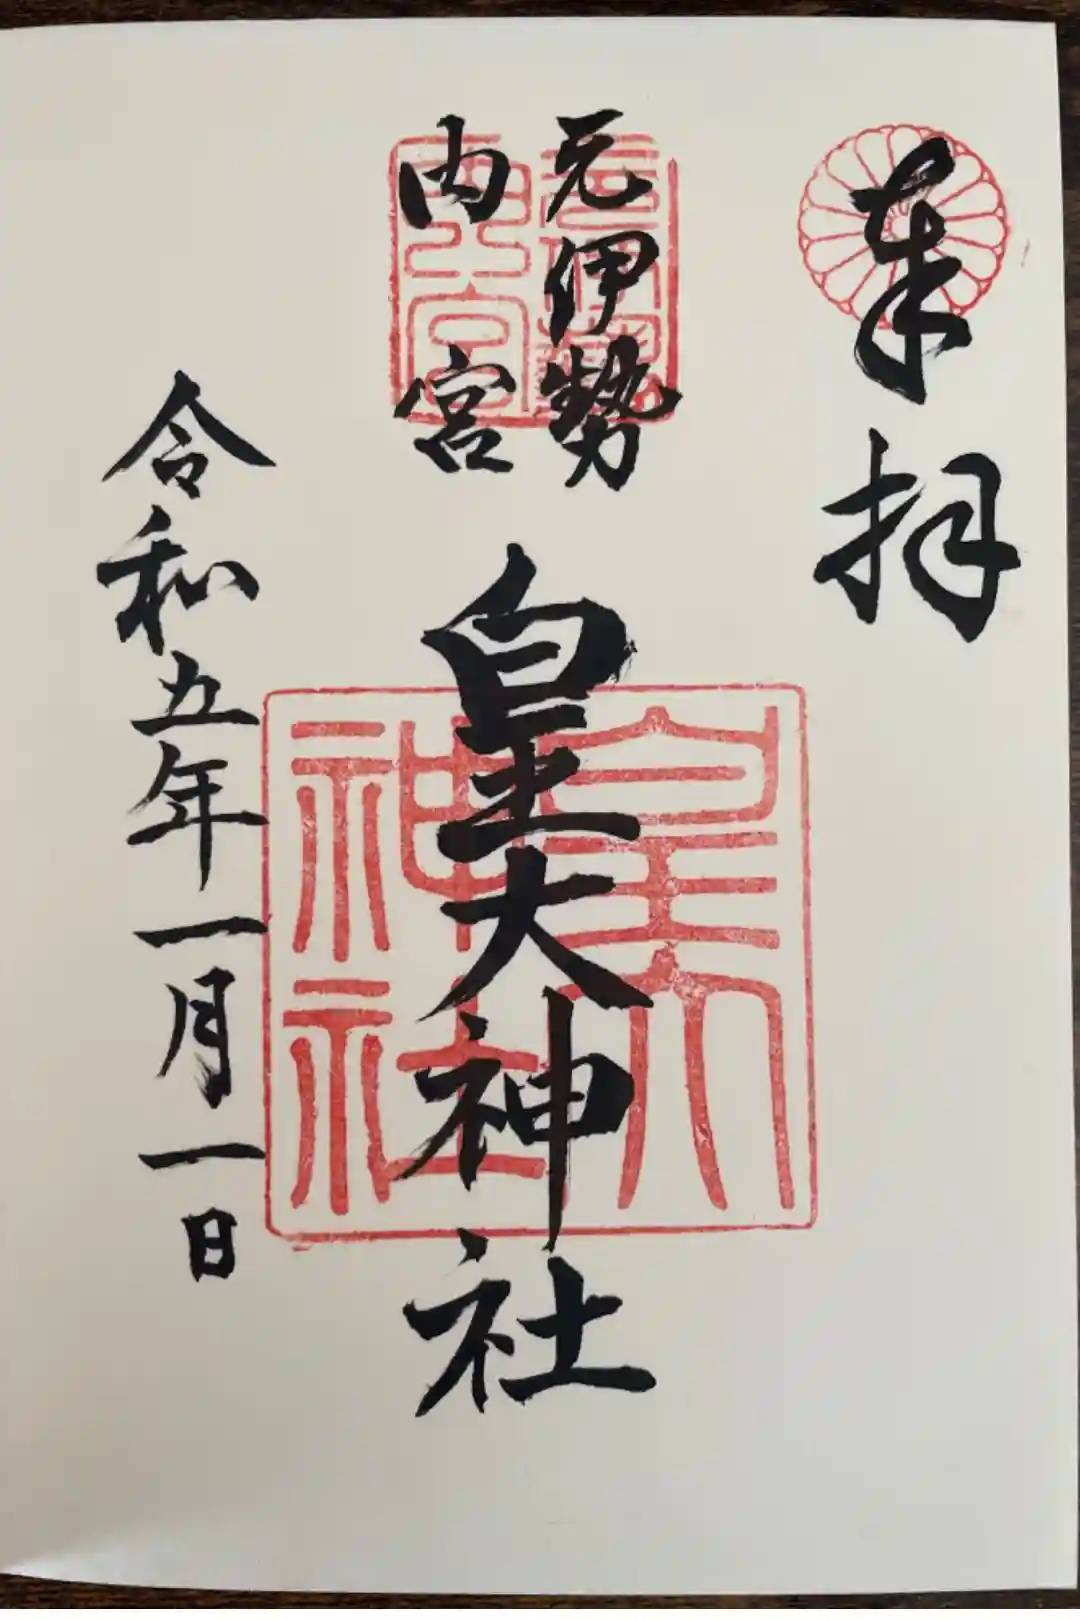 奉拝
元伊勢
内宮
皇大神社
令和五年一月一日
元伊勢
内宮
皇大
神社